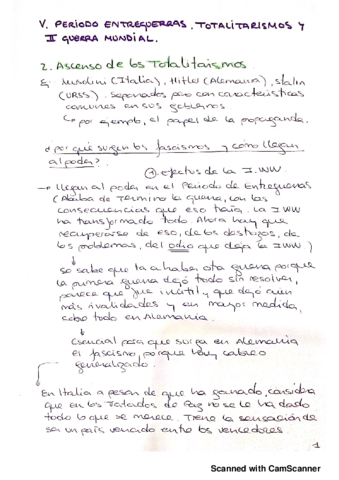 V. PERIODO ENTREGUERRAS, TOTALITARISMOS Y
II GUERRA MUNDIAL.
2. Ascenso de los Totalitarismos
Ej. Musolini (Italia), Hitler (Alemania), Stalin
(URSS). Separados pero con características
comunes en sus gobiernos.
↳ por ejemplo, el papel de la propaganda.
¿por qué surgen los fascismos y como llegan
al poder?
① efectos de la I WW
→ llegan al poder en el Periodo de Entreguerras
(Acaba de Terminar la guerra, con las
consecuencias que eso traía. La I WW
ha transformado todo. Ahora hay que
recuperarse de eso, de los destrozos, de
los problemas, del odio que deja la I WW)
so sabe que va a haber otra guerra porque
la primera guerra dejó todo sin resolver,
parece que fue inútil y que dejó aún
más rivalidades y en mayor medida,
sobre todo en Alemania.
Esencial para que surja en Alemania
el fascismo, porque hay cabreo
generalizado.
En Italia a pesar de que ha ganado, considera
que en los Tratados de Paz no se le ha dado
todo lo que se merece. Tiene la sensación de
ser un país vencido entre los vencedores.
1
Scanned with CamScanner